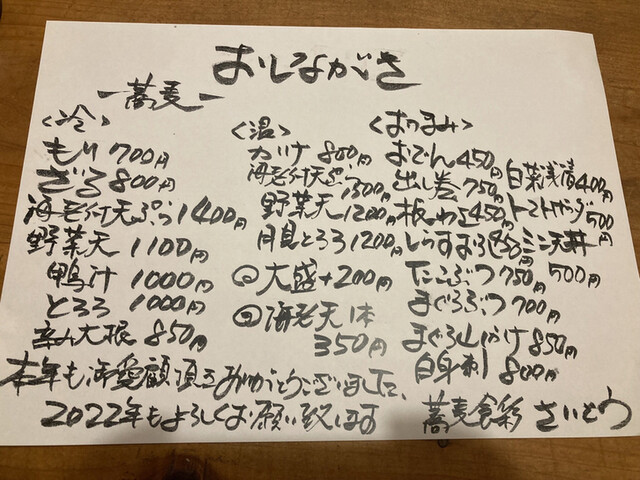 おしながき
ー蕎麦ー
<冷>
もり 700円
ざる 800円
海老付天ぷら 1400円
野菜天 1100円
鴨汁 1000円
とろろ 1000円
辛み大根 850円
<温>
かけ 800円
海老付天ぷら 1500円
野菜天 1200円
月見とろろ 1200円
◎大盛+200円
◎海老天1本
350円
<おつまみ>
おでん 450円
出し巻 750円
板わさ 450円
しらすおろし
たこぶつ 750円
まぐろぶつ 700円
まぐろ山かけ 850円
白身刺 800円
白菜浅漬 400円
トマトサラダ 500円
ミニ天丼
500円
本年も御愛顧頂きありがとうございました、
2022年もよろしくお願い致します
蕎麦食彩 さいとう